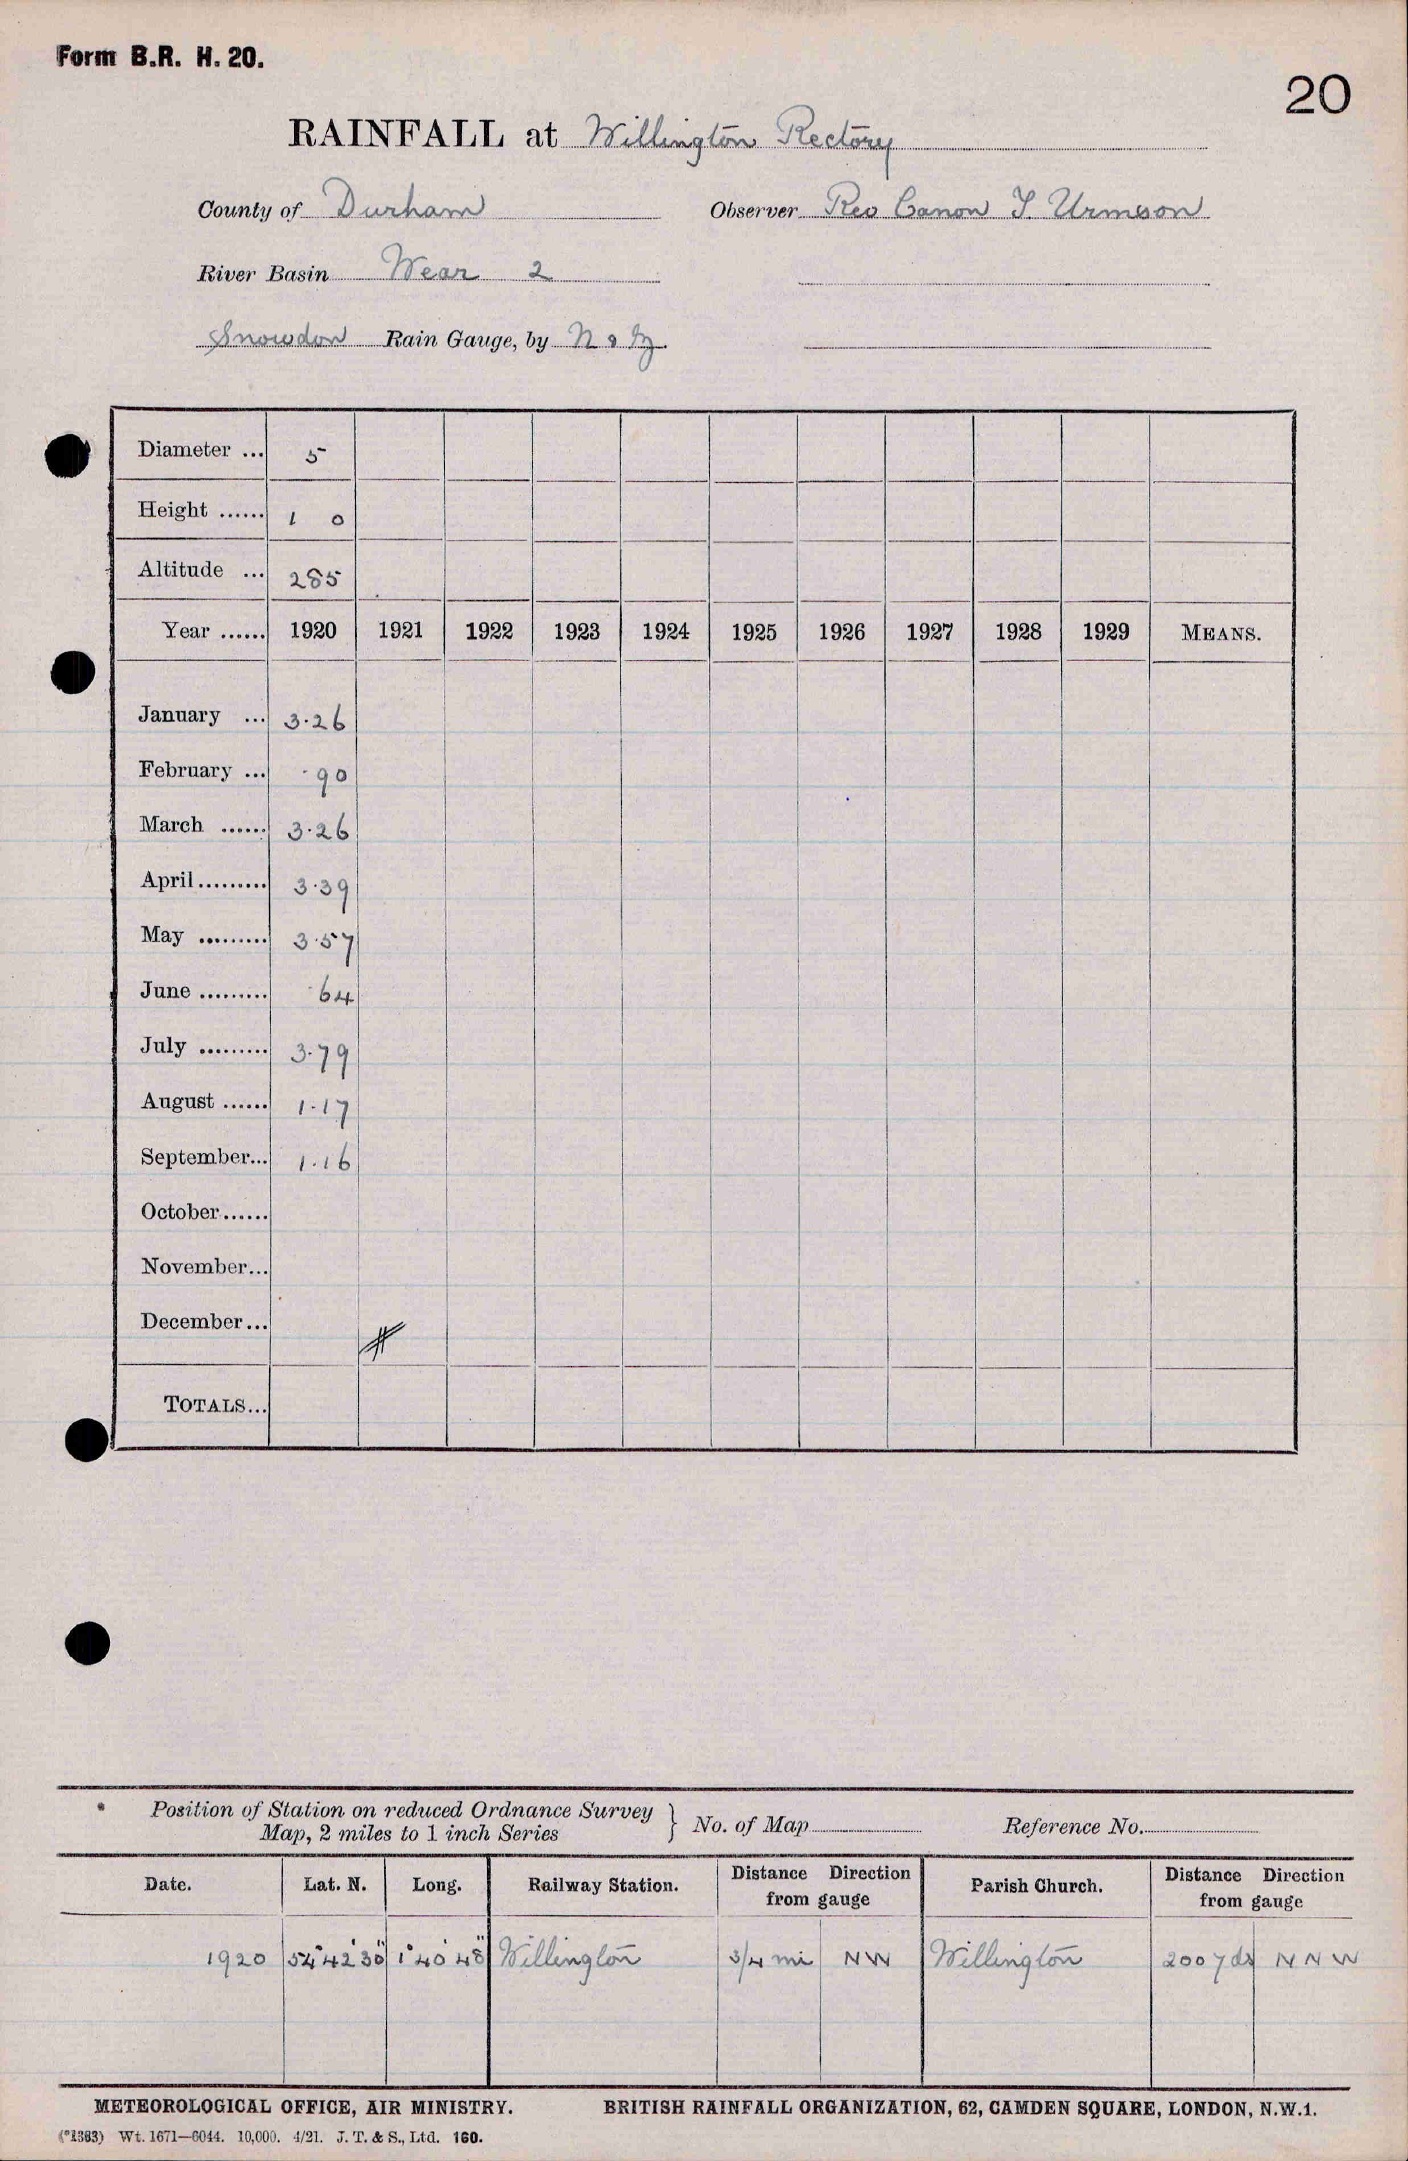 Form B.R. H. 20.
20
RAINFALL at Willington Rectory
County of Durham Observer Rev Canon T Urmson
River Basin Wear 2
Snowdon Rain Gauge, by N & Z.
Diameter ... 5
Height ...... 1 0
Altitude ... 285
Year ...... 1920 1921 1922 1923 1924 1925 1926 1927 1928 1929 MEANS.
January ... 3.26
February ... .90
March ...... 3.26
April ......... 3.39
May ......... 3.57
June ......... .64
July ......... 3.79
August ...... 1.17
September... 1.16
October......
November...
December...
TOTALS...
Position of Station on reduced Ordnance Survey
Map, 2 miles to 1 inch Series } No. of Map Reference No.
Date. Lat. N. Long. Railway Station. Distance Direction from gauge Parish Church. Distance Direction from gauge
1920 54° 42' 30" 1° 40' 48" Willington 3/4 mi NW Willington 200 yds N N W
METEOROLOGICAL OFFICE, AIR MINISTRY. BRITISH RAINFALL ORGANIZATION, 62, CAMDEN SQUARE, LONDON, N.W.1.
(*1383) Wt. 1671—6044. 10,000. 4/21. J. T. & S., Ltd. 160.